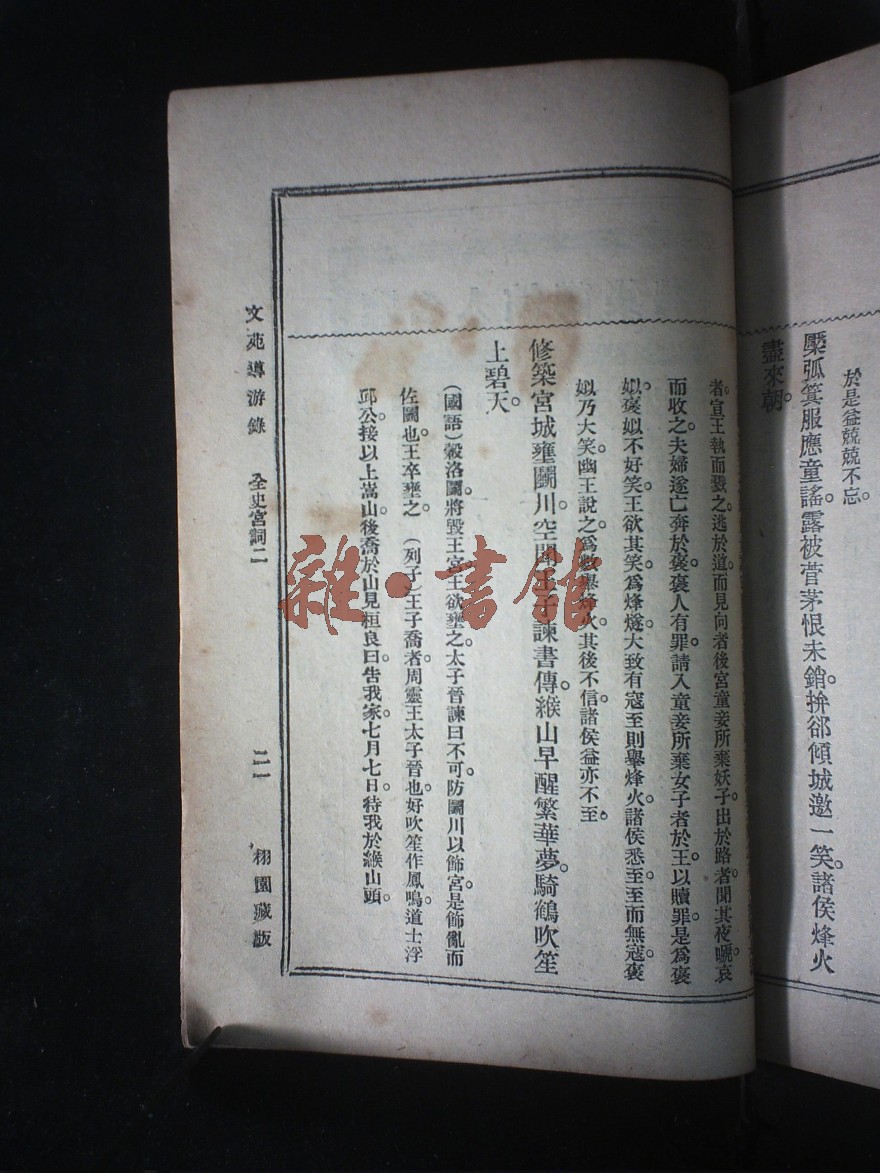 於是益兢兢不忘。
檿弧箕服應童謠。露被菅茅恨未銷。拚卻傾城邀一笑。諸侯烽火
盡來朝。
者。宣王執而戮之。逃於道。而見向者後宮童妾所棄妖子出於路者。聞其夜嗁。哀
而收之。夫婦遂亡奔於褒。褒人有罪。請入童妾所棄女子者於王以贖罪。是爲褒
姒。褒姒不好笑。王欲其笑。爲烽燧大致。有寇至則舉烽火。諸侯悉至。至而無寇。褒
姒乃大笑。幽王說之。爲數舉烽火。其後不信。諸侯益亦不至。
修築宮城壅鬭川。空聞王子諫書傳。緱山早醒繁華夢。騎鶴吹笙
上碧天。
（國語）穀洛鬭。將毀王宮。王欲壅之。太子晉諫曰。不可。防鬭川以飾宮。是飾亂而
佐鬭也。王卒壅之。（列子）王子喬者。周靈王太子晉也。好吹笙。作鳳鳴。道士浮
邱公接以上嵩山。後喬於山見桓良曰。告我家。七月七日。待我於緱山頭。
文苑導游錄 全史宮詞二 二一 栩園藏版
雜·書館